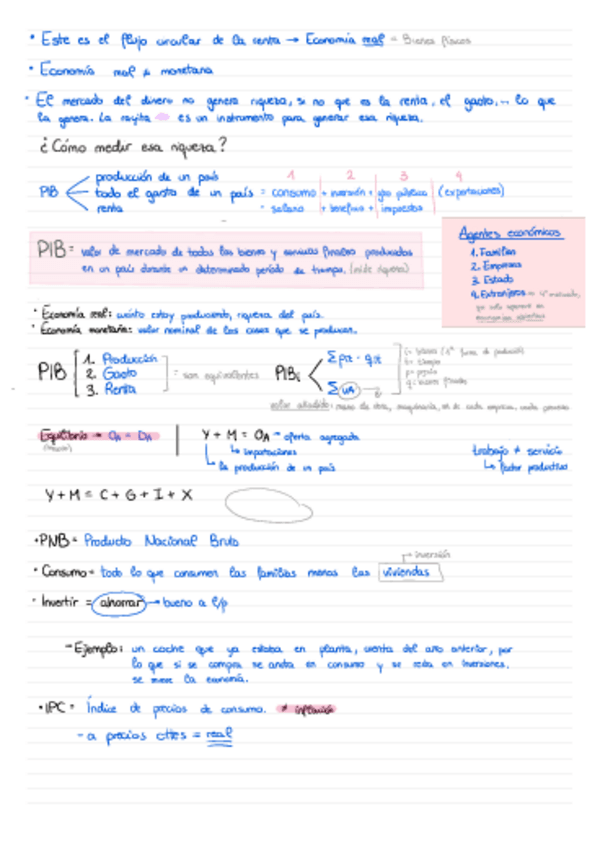 • Este es el flujo circular de la renta → Economía real = Bienes físicos
• Economía real ≠ monetaria
• El mercado del dinero no genera riqueza, si no que es la renta, el gasto,... lo que
la genera. La rayita es un instrumento para generar esa riqueza.
¿Cómo medir esa riqueza?
1 2 3 4
producción de un país
PIB todo el gasto de un país = consumo + inversión + gto público (exportaciones)
renta = salario + beneficio + impuestos
PIB = valor de mercado de todos los bienes y servicios finales producidos
en un país durante un determinado periodo de tiempo. (mide riqueza)
Agentes económicos
1. Familias
2. Empresas
3. Estado
4. Extranjeros
• Economía real: cuánto estoy produciendo, riqueza del país.
• Economía monetaria: valor nominal de las cosas que se producen.
PIB 1. Producción
2. Gasto = son equivalentes
3. Renta
PIB
Σ VA
valor añadido: mano de obra, maquinaria, de cada empresa, cada proceso
Equilibrio → OA = DA
Y + M = OA → oferta agregada
↳ importaciones
↳ la producción de un país
trabajo ≠ servicio
↳ factor productivo
Y + M = C + G + I + X
• PNB = Producto Nacional Bruto
→ inversión
• Consumo = todo lo que consumen las familias menos las viviendas
• Invertir = ahorrar → bueno a l/p
- Ejemplo: un coche que ya estaba en planta, cuenta del año anterior, por
lo que si se compra se anota en consumo y se resta en inversiones.
se mueve la economía.
• IPC = Índice de precios de consumo. ≠ inflación
- a precios cttes = real